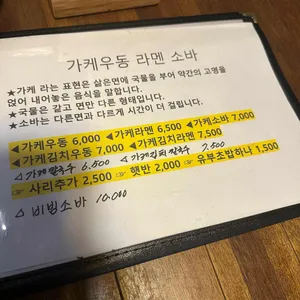 가케우동 라멘 소바
★가케 라는 표현은 삶은면에 국물을 부어 약간의 고명을
얹어 내어놓은 음식을 말합니다.
★국물은 같고 면만 다른 형태입니다.
★소바는 다른면과 다르게 시간이 더 걸립니다.
◀가케우동 6,000 ◀가케라멘 6,500 ◀가케소바 7,000
◀가케김치우동 7,000 ◀가케김치라멘 7,500
◁ 가케 칼국수 6,500 ◁ 가케김치 칼국수 7,500
☞ 사리추가 2,500 ☞ 햇반 2,000 ☞ 유부초밥하나 1,500
△ 비빔소바 10,000